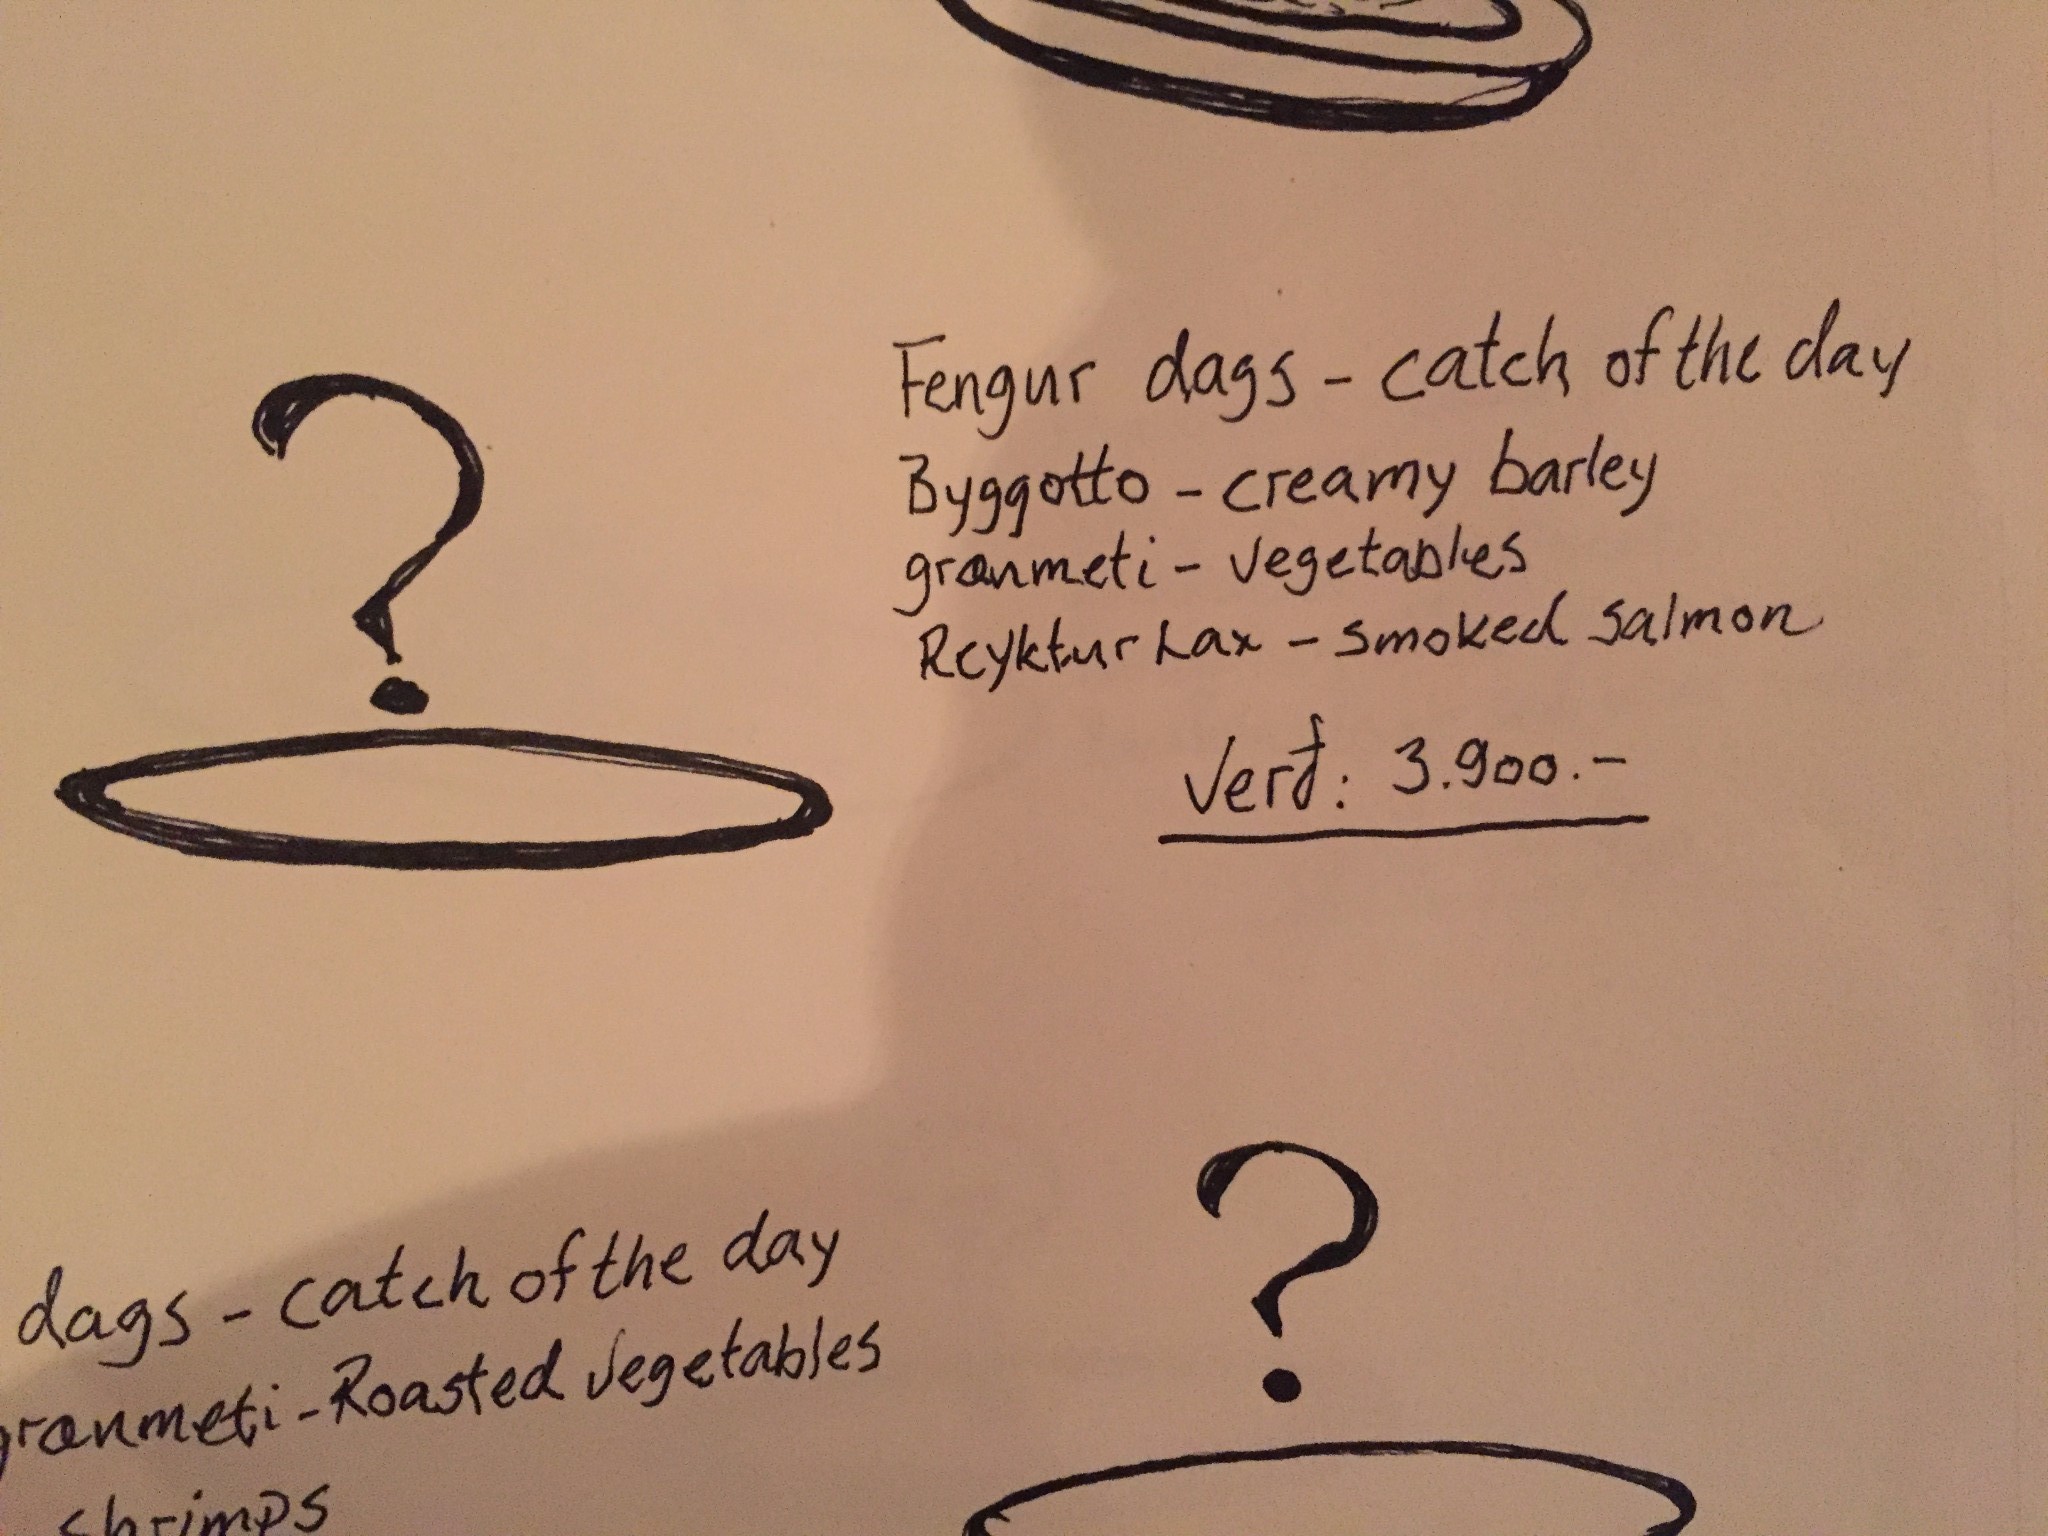 Fengur dags - catch of the day
Byggotto - creamy barley
grænmeti - vegetables
Reyktur Lax - smoked salmon
Verð: 3.900.-
dags - catch of the day
grænmeti - Roasted vegetables
shrimps